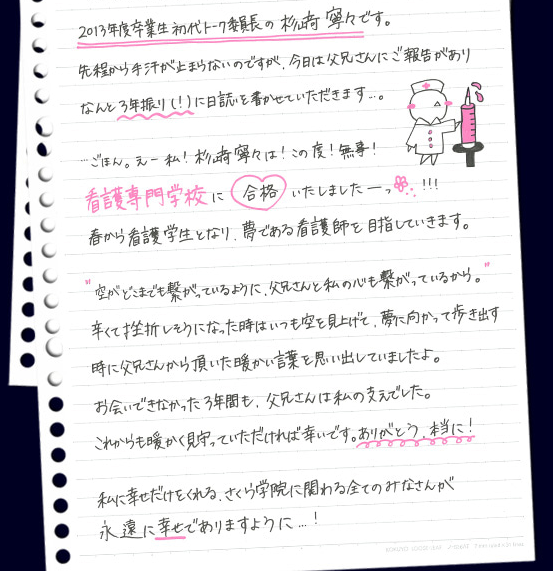 2013年度卒業生 初代トーク委員長の 杉﨑 寧々です。
先程から手汗が止まらないのですが、今日は父兄さんにご報告があり
なんと3年振り(!)に日誌を書かせていただきます…。
…ごほん。えー 私!杉﨑寧々は!この度!無事!
看護専門学校に 合格 いたしましたーっ !!!
春から看護学生となり、夢である看護師を目指していきます。
"空がどこまでも繋がっているように、父兄さんと私の心も繋がっているから。"
辛くて挫折しそうになった時はいつも空を見上げて、夢に向かって歩き出す
時に父兄さんから頂いた暖かい言葉を思い出していましたよ。
お会いできなかった3年間も、父兄さんは私の支えでした。
これからも暖かく見守っていただければ幸いです。ありがとう、本当に!
私に幸せだけをくれる、さくら学院に関わる全てのみなさんが
永遠に幸せでありますように…!